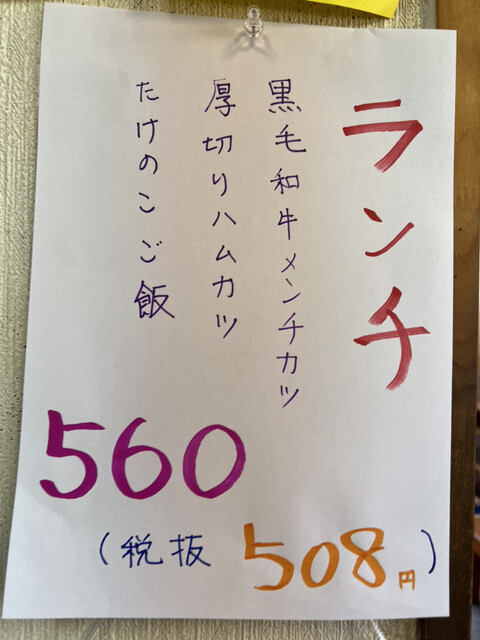 ランチ
黒毛和牛メンチカツ
厚切りハムカツ
たけのこご飯
560
(税抜 508円)